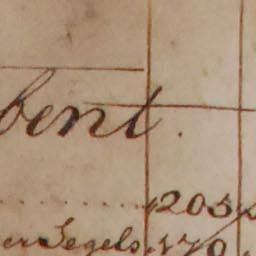 bent.
205
er Segels 170